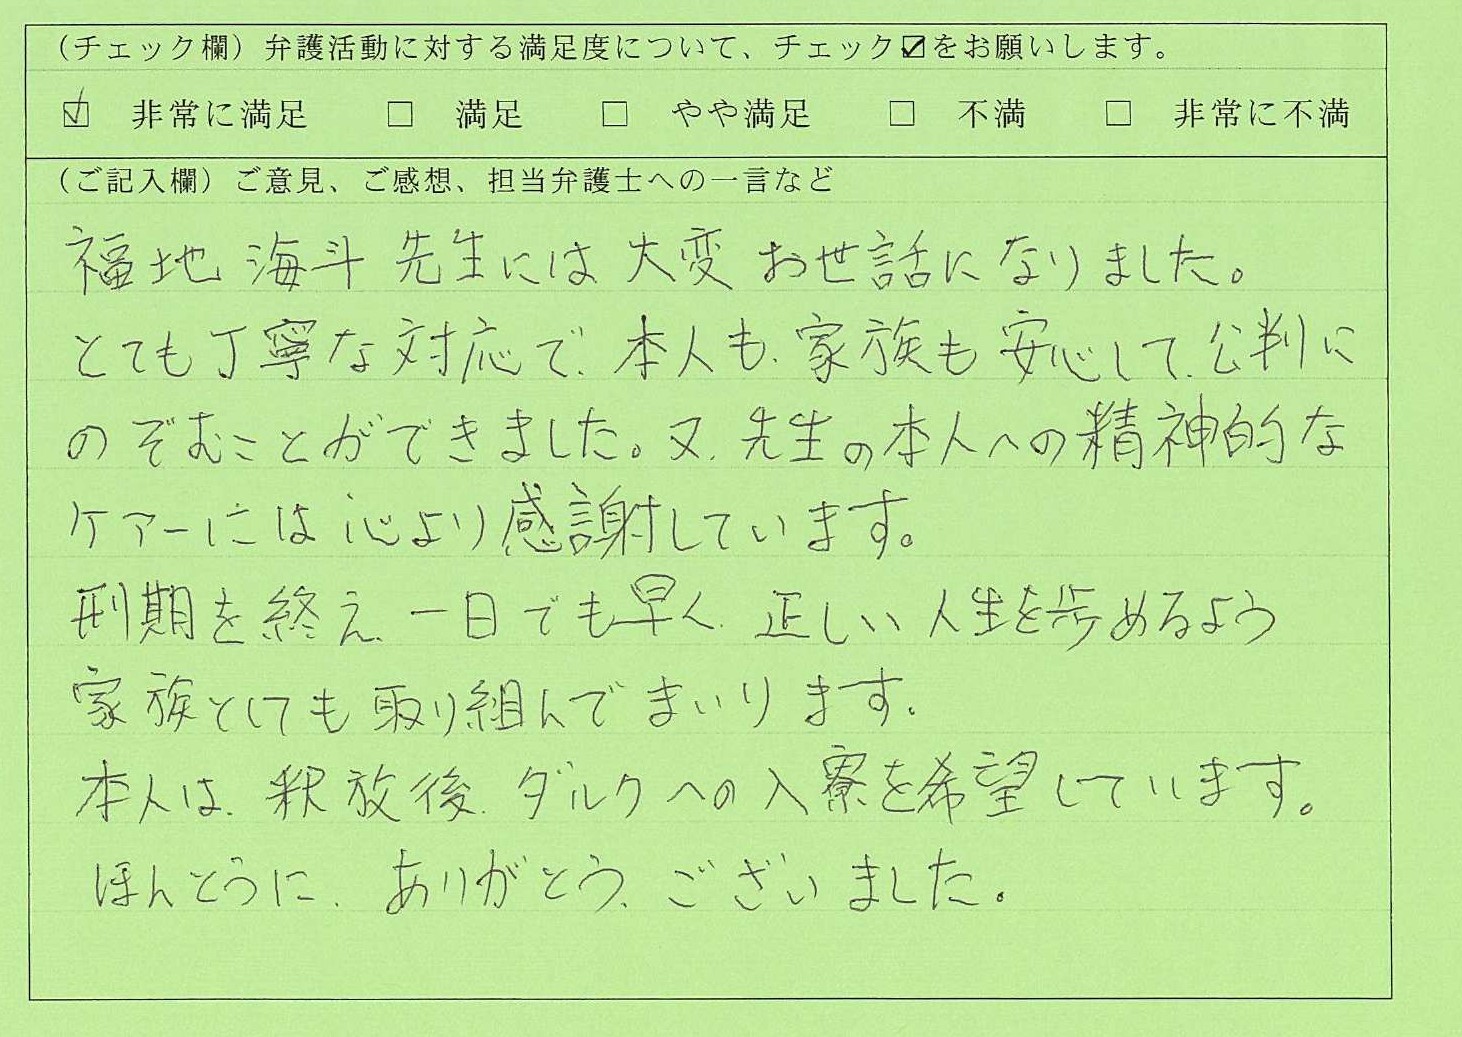 （チェック欄）弁護活動に対する満足度について、チェック☑をお願いします。
☑ 非常に満足 □ 満足 □ やや満足 □ 不満 □ 非常に不満
（ご記入欄）ご意見、ご感想、担当弁護士への一言など
福地 海斗 先生には 大変 お世話に なりました。
とても丁寧な対応で、本人も、家族も 安心して、公判に
のぞむことができました。又、先生の本人への精神的な
ケアーには 心より感謝しています。
刑期を終え、一日でも早く、正しい人生を歩めるよう
家族としても取り組んでまいります。
本人は、釈放後、ダルクへの入寮を希望しています。
ほんとうに、ありがとう、ございました。